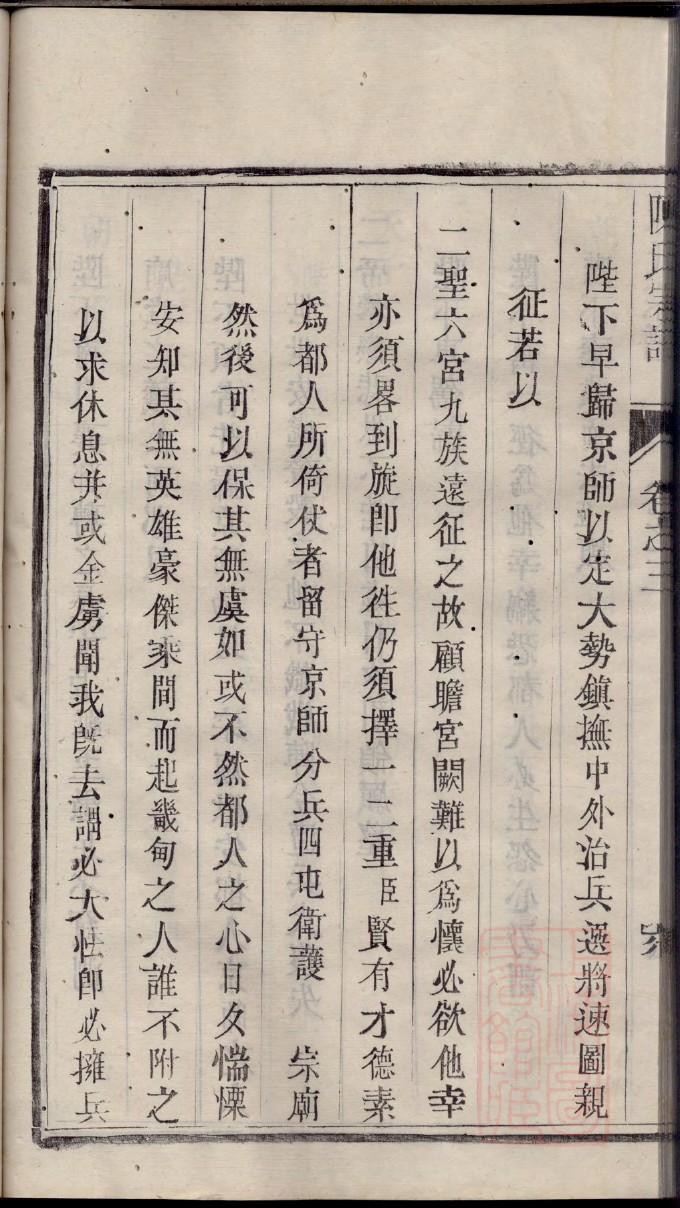 陳氏宗譜
卷之三
陛下早歸京師以定大勢鎮撫中外治兵選將速圖親
征若以
二聖六宮九族遠征之故顧瞻宮闕難以爲懷必欲他幸
亦須畧到旋卽他徃仍須擇一二重臣賢有才德素
爲都人所倚仗者留守京師分兵四屯衛護 宗廟
然後可以保其無虞如或不然都人之心日夕惴慄
安知其無英雄豪傑乘間而起畿甸之人誰不附之
以求休息并或金虜聞我旣去謂必大怯卽必擁兵